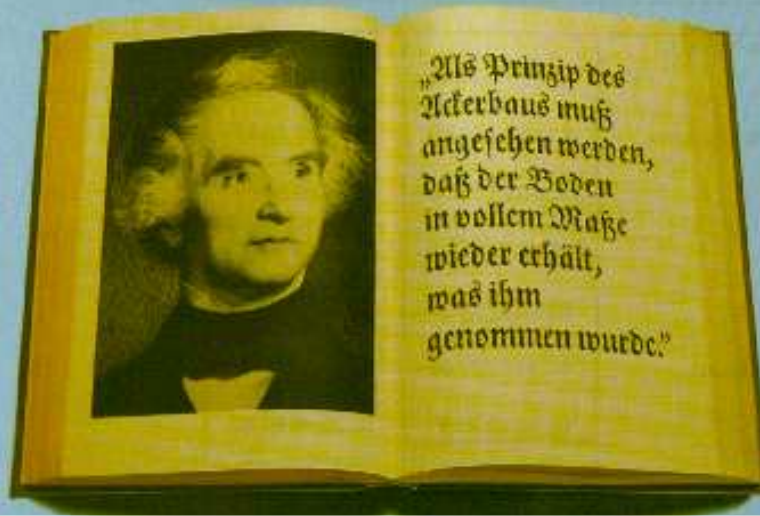 „Als Prinzip des
Ackerbaus muß
angesehen werden,
daß der Boden
in vollem Maße
wieder erhält,
was ihm
genommen wurde.”